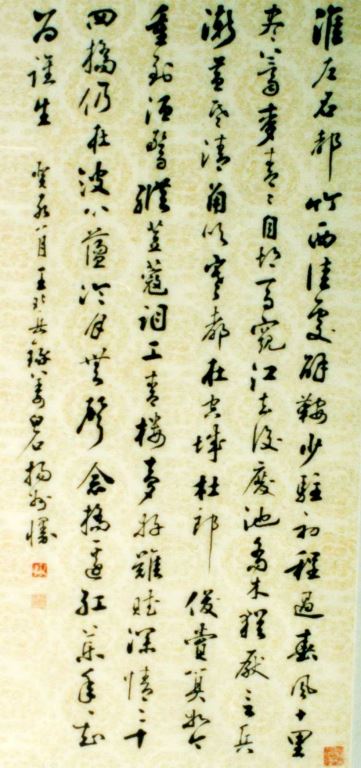 淮左名都竹西佳處解鞍少駐初程過春風十里
盡薺麥青々自胡馬窺江去後廢池喬木猶厭言兵
漸黃昏清角吹寒都在空城杜郎俊賞算而今
重到須驚縱豆蔻詞工青樓夢好難賦深情二十
四橋仍在波心蕩冷月無聲念橋邊紅葯年年知
為誰生 八月王錄姜白石揚州慢